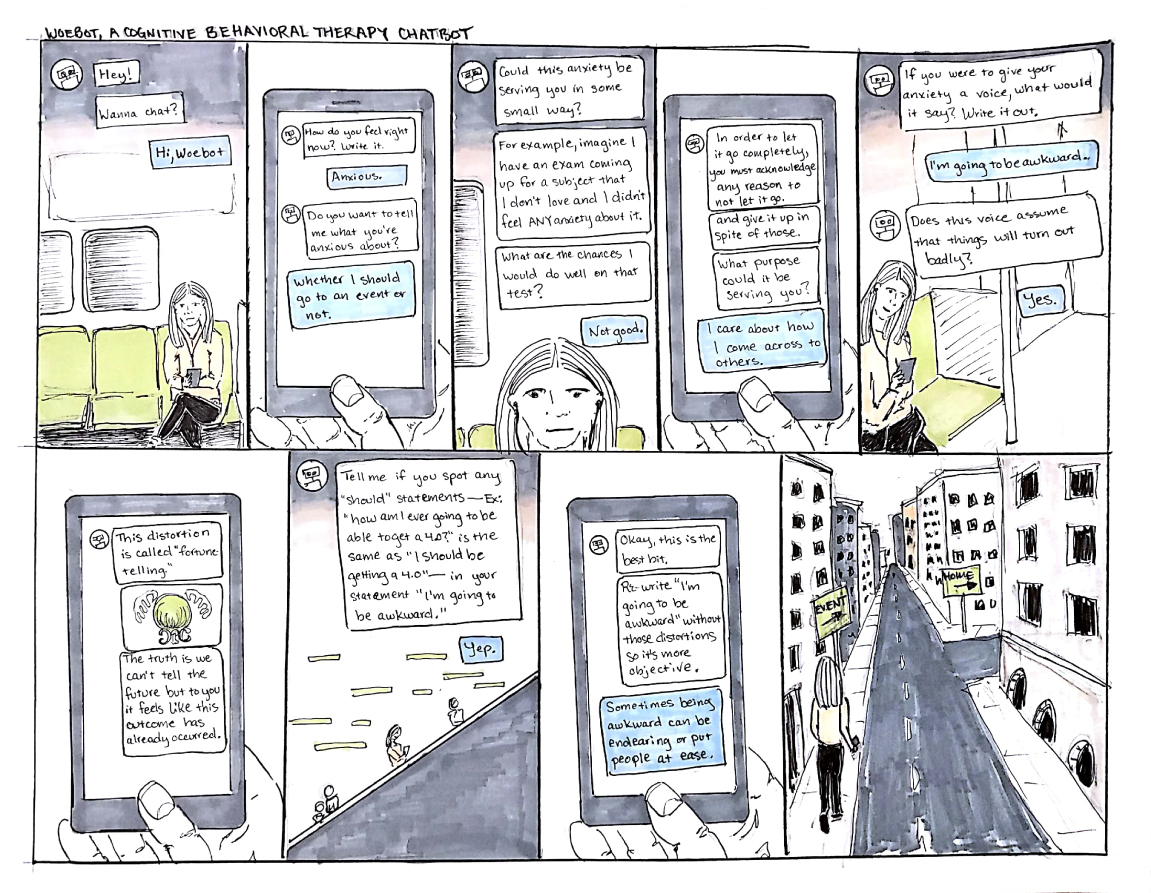 WOEBOT, A COGNITIVE BEHAVIORAL THERAPY CHATBOT
Hey!
Wanna chat?
Hi, Woebot
How do you feel right
now? Write it.
Anxious.
Do you want to tell
me what you're
anxious about?
whether I should
go to an event or
not.
Could this anxiety be
serving you in some
small way?
For example, imagine I
have an exam coming
up for a subject that
I don't love and I didn't
feel ANY anxiety about it.
What are the chances I
would do well on that
test?
Not good.
In order to let
it go completely,
you must acknowledge
any reason to
not let it go.
and give it up in
spite of those.
What purpose
could it be
serving you?
I care about how
I come across to
others.
If you were to give your
anxiety a voice, what would
it say? Write it out.
I'm going to be awkward.
Does this voice assume
that things will turn out
badly?
Yes.
This distortion
is called "fortune
telling."
The truth is we
can't tell the
future but to you
it feels like this
outcome has
already occurred.
Tell me if you spot any
"should" statements — Ex:
"how am I ever going to be
able to get a 4.0?" is the
same as "I should be
getting a 4.0" — in your
statement "I'm going to
be awkward."
Yep.
Okay, this is the
best bit.
Re-write "I'm
going to be
awkward" without
those distortions
so it's more
objective.
Sometimes being
awkward can be
endearing or put
people at ease.
EVENT
HOME